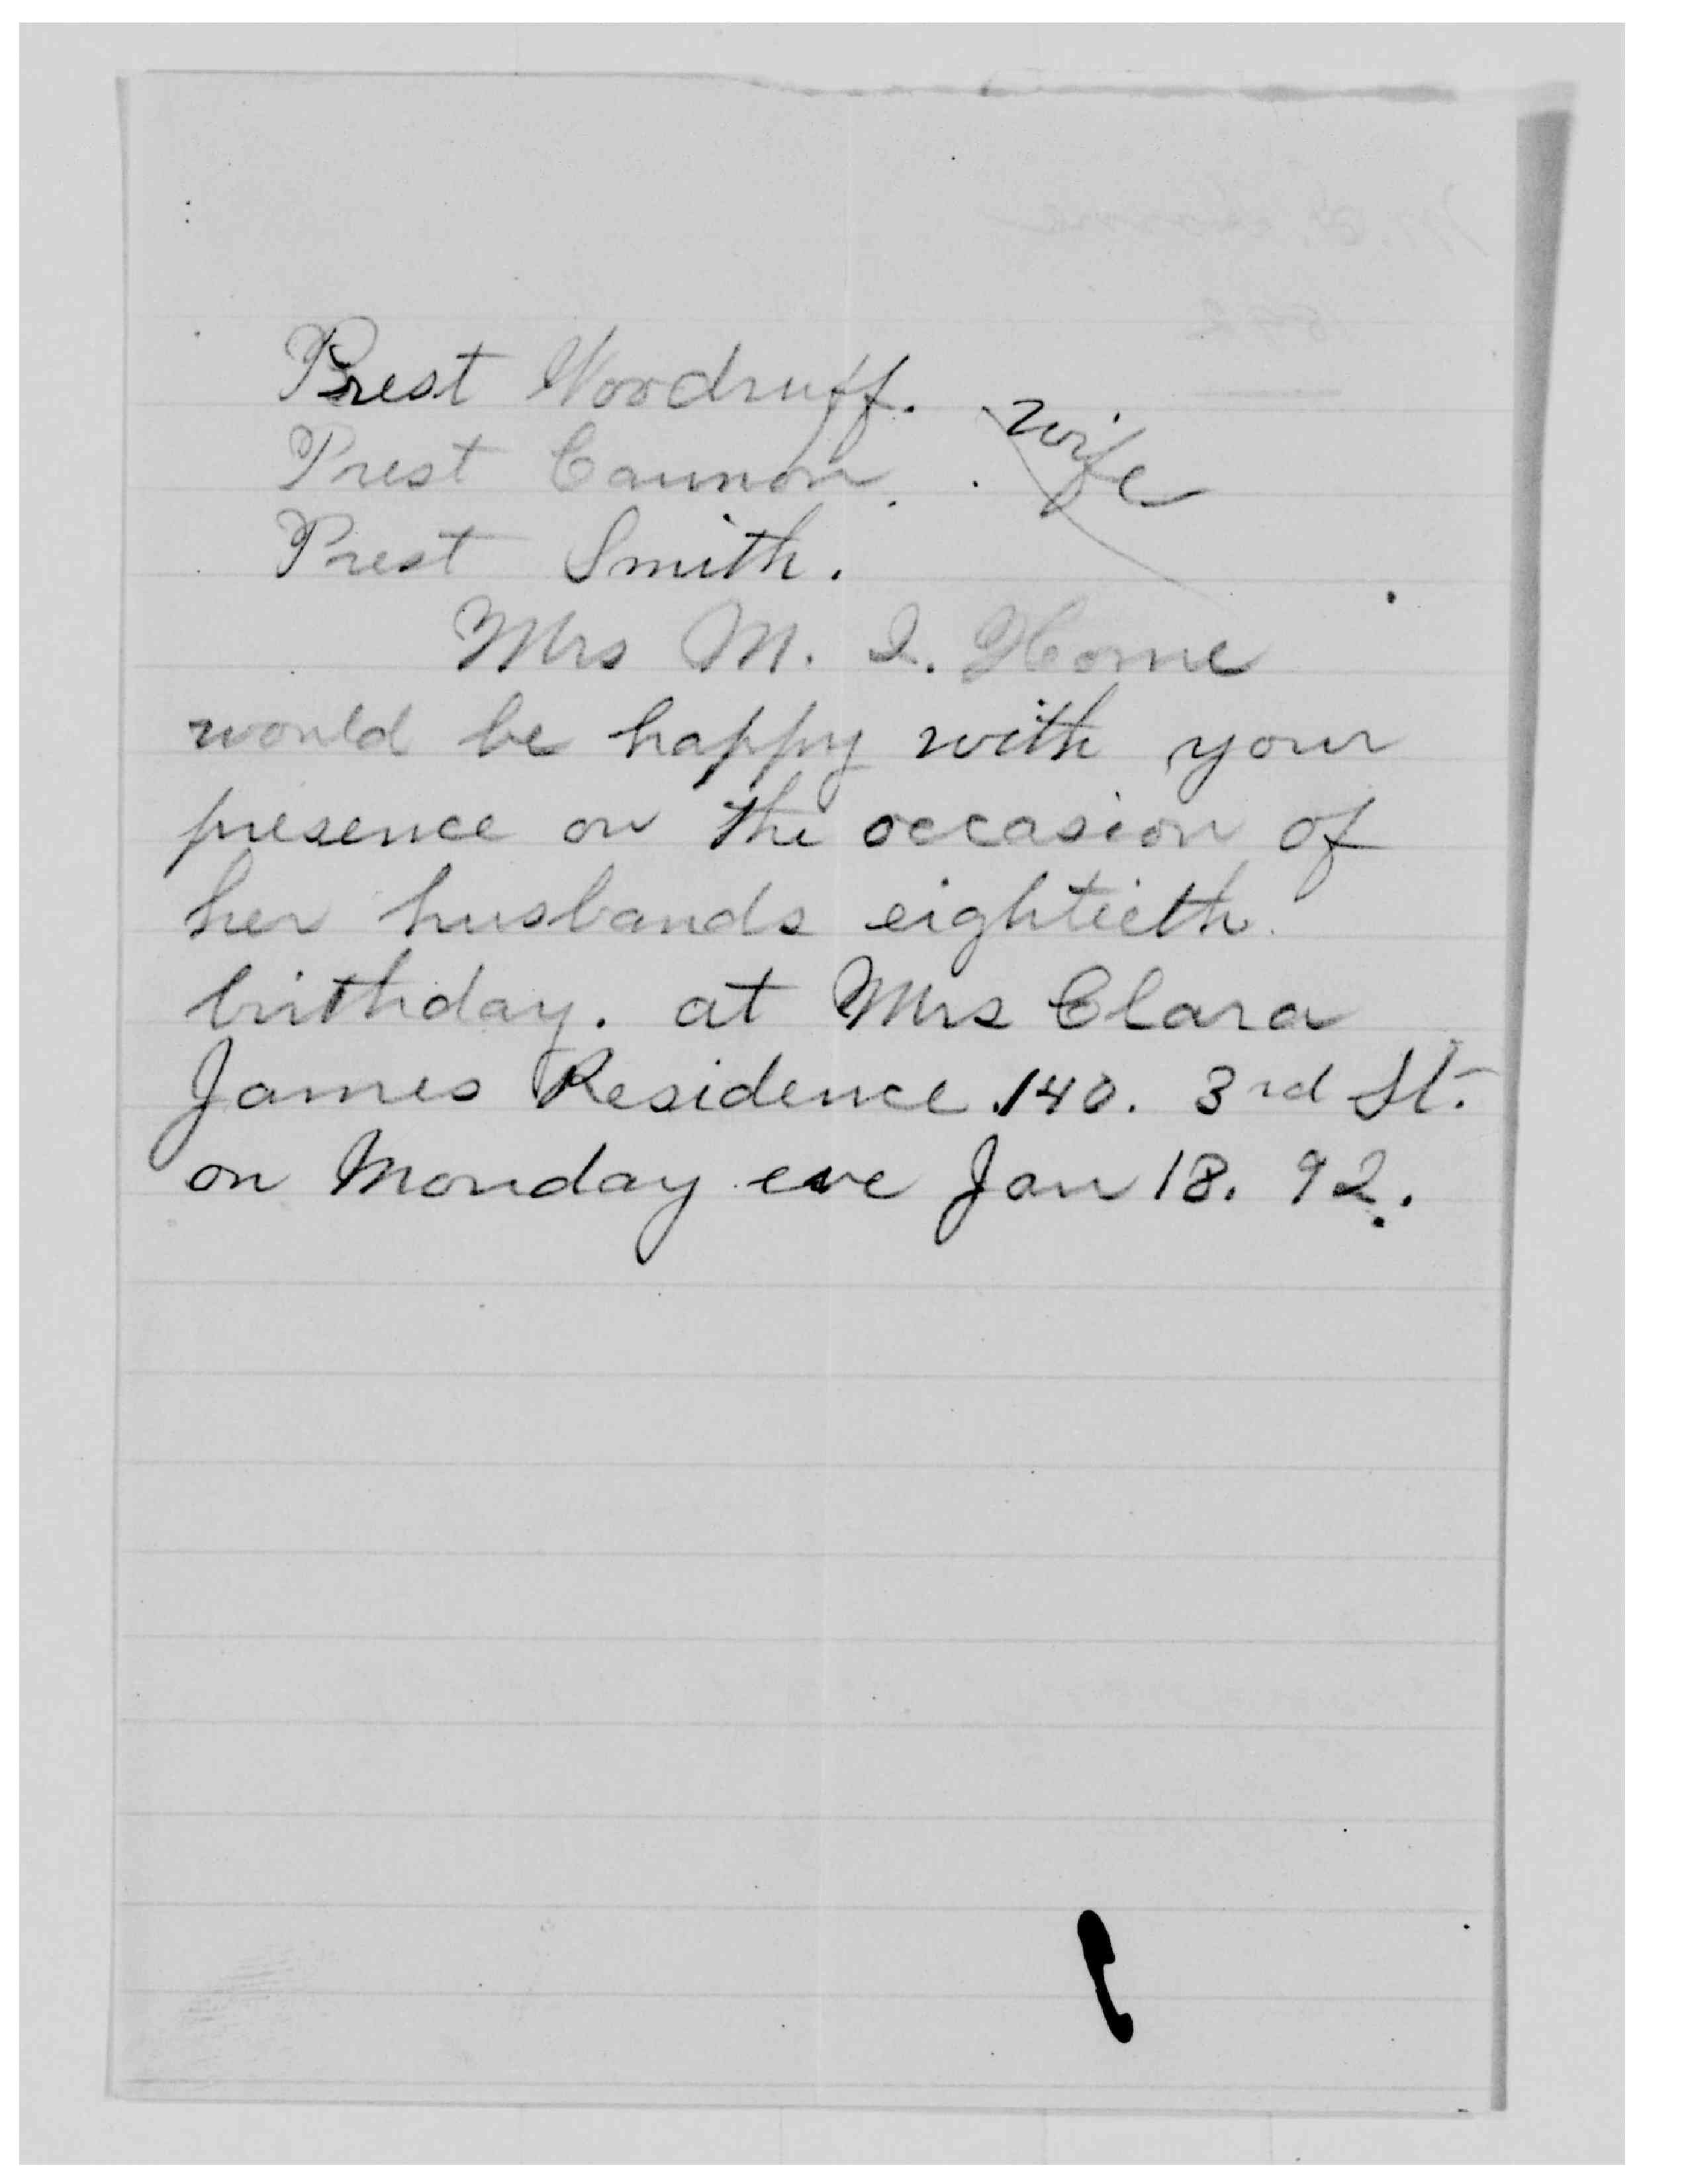 Prest Woodruff.
Prest Cannon. wife
Prest Smith.
Mrs M. I. Horne
would be happy with your
presence on the occasion of
her husbands eightieth
birthday. at Mrs Clara
James Residence 140. 3rd St.
on Monday eve Jan 18. 92.